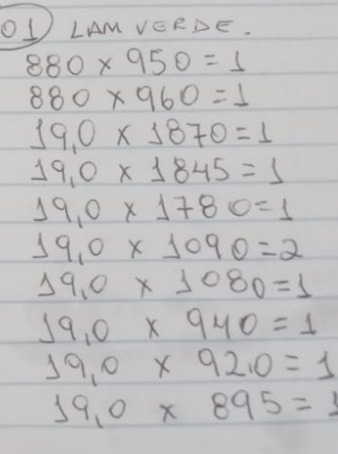 01 LAM VERDE.
880 x 950 = 1
880 x 960 = 1
19,0 x 1870 = 1
19,0 x 1845 = 1
19,0 x 1780 = 1
19,0 x 1090 = 2
19,0 x 1080 = 1
19,0 x 940 = 1
19,0 x 92,0 = 1
19,0 x 895 = 1